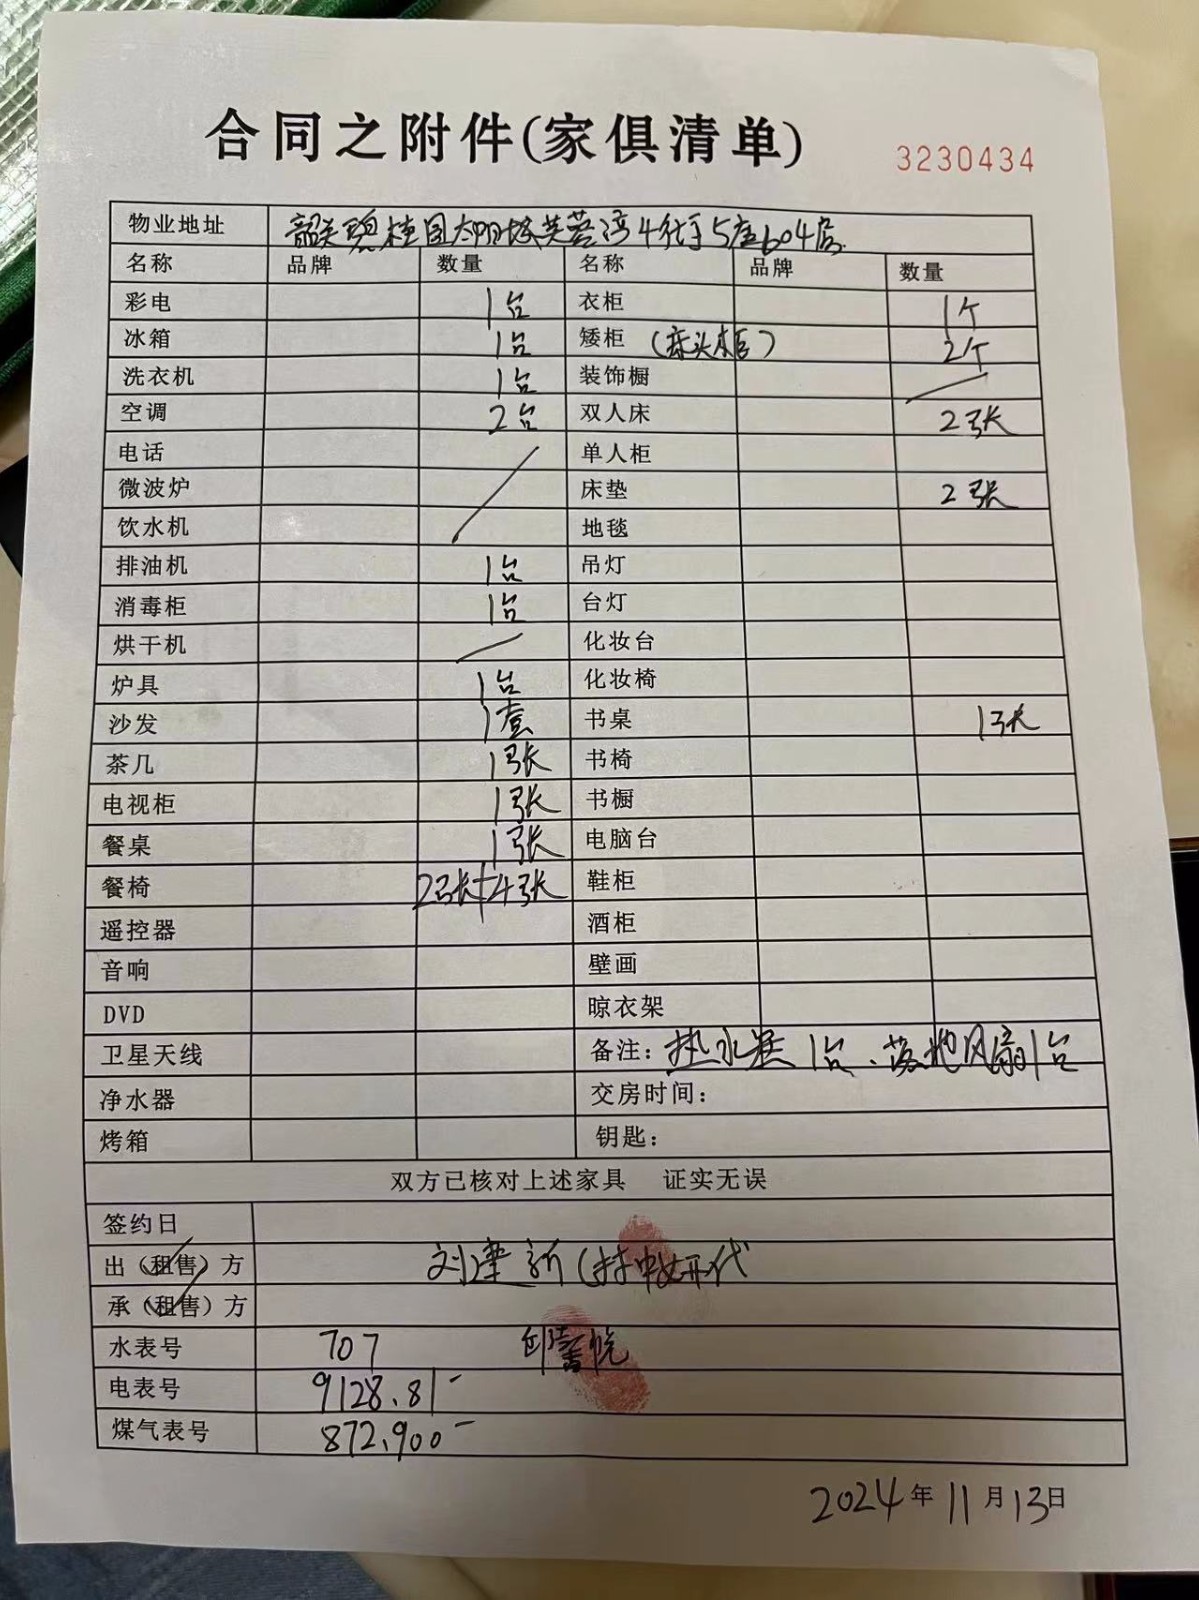 合同之附件(家俱清单)
3230434
物业地址 韶关碧桂园太阳城芙蓉湾4街5座604房
名称 品牌 数量 名称 品牌 数量
彩电 1台 衣柜 1个
冰箱 1台 矮柜 (床头柜) 2个
洗衣机 1台 装饰橱
空调 2台 双人床 2张
电话 单人柜
微波炉 床垫 2张
饮水机 地毯
排油机 1台 吊灯
消毒柜 1台 台灯
烘干机 化妆台
炉具 1台 化妆椅
沙发 1套 书桌 1张
茶几 1张 书椅
电视柜 1张 书橱
餐桌 1张 电脑台
餐椅 2张+4张 鞋柜
遥控器 酒柜
音响 壁画
DVD 晾衣架
卫星天线 备注: 热水器1台、落地风扇1台
净水器 交房时间:
烤箱 钥匙:
双方已核对上述家具 证实无误
签约日
出(租售)方 刘建新(林 代
承(租售)方
水表号 707 邱
电表号 9128.81
煤气表号 872.900
2024年11月13日